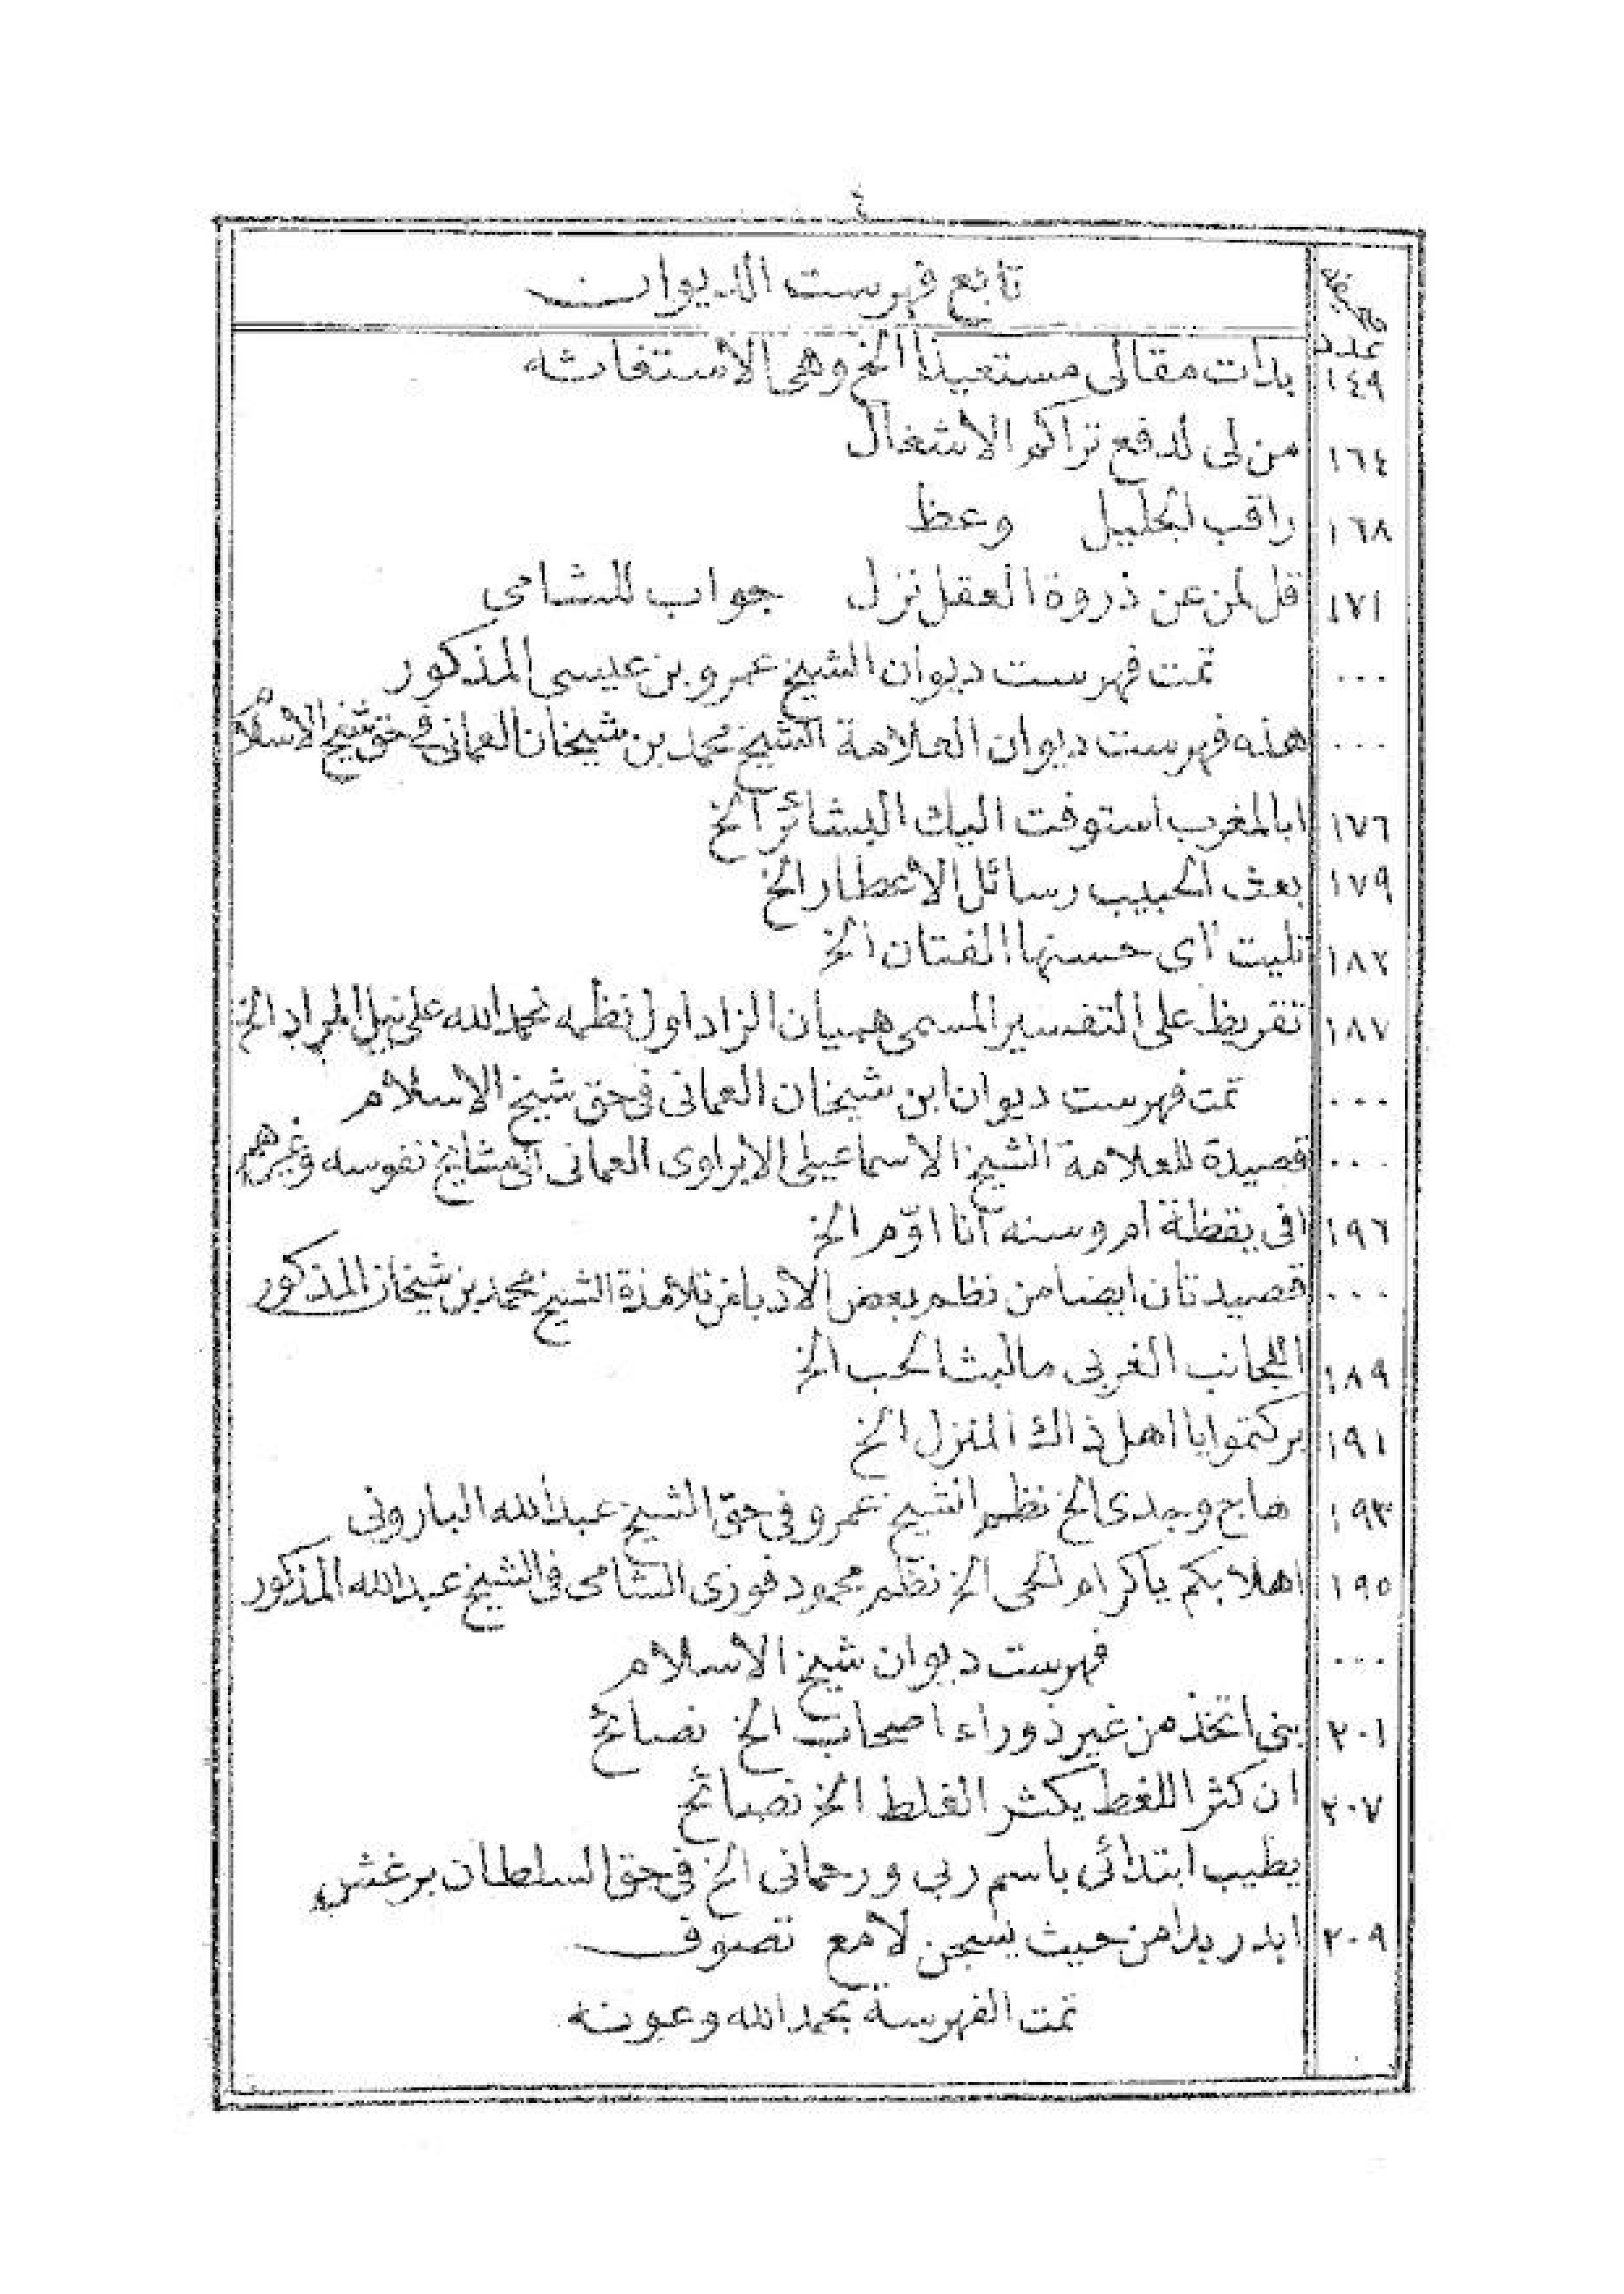 ٤
صحيفة تابع فهرست الديوان
عدد
١٤٩ بدات مقالى مستعيذا الخ وهى الاستغاثه
١٦٤ من لى لدفع تراكم الاشغال
١٦٨ راقب لجليل وعظ
١٧١ قل لمن عن ذروة العقل نزل جواب للشامى
... تمت فهرست ديوان الشيخ عمرو بن عيسى المذكور
... هذه فهرست ديوان العلامة الشيخ محمد بن شيخان العمانى فى حق شيخ الاسلام
١٧٦ ابالمغرب استوفت اليك البشائر الخ
١٧٩ بعث الحبيب رسائل الأعطار الخ
١٨٢ تليت آى حسنها الفتان الخ
١٨٧ تقريظ على التفسير المسمى هميان الزاد اول نظمه نحمد الله على نيل المراد الخ
... تمت فهرست ديوان ابن شيخان العمانى فى حق شيخ الاسلام
... قصيدة للعلامة الشيخ الاسماعيلى الابراوى العمانى الى مشايخ نفوسه وغيرهم
١٩٦ افى يقظة ام وسنه آنا اوّم الخ
... قصيدتان ايضا من نظم بعض الأدبا من تلامذة الشيخ محمد بن شيخان المذكور
١٨٩ الجانب الغربى مالبث الحب الخ
١٩١ بركتموايا اهل ذاك المنزل الخ
١٩٣ هاج وجدى الخ نظم الشيخ عمرو فى حق الشيخ عبد الله البارونى
١٩٥ اهلا بكم ياكرام لحى الخ نظم محمود فوزى الشامى فى الشيخ عبد الله المذكور
... فهرست ديوان شيخ الاسلام
٢٠١ بنى اتخذ من غير ذوراء اصحاب الخ نصائح
٢٠٧ ان كثر اللغط يكثر الغلط الخ نصائح
يطيب ابتدائى باسم ربى ورحمانى الخ فى حق السلطان برغش
٢٠٩ ابدر بدا من حيث يسجن لامع تصوف
تمت الفهرسة بحمد الله وعونه